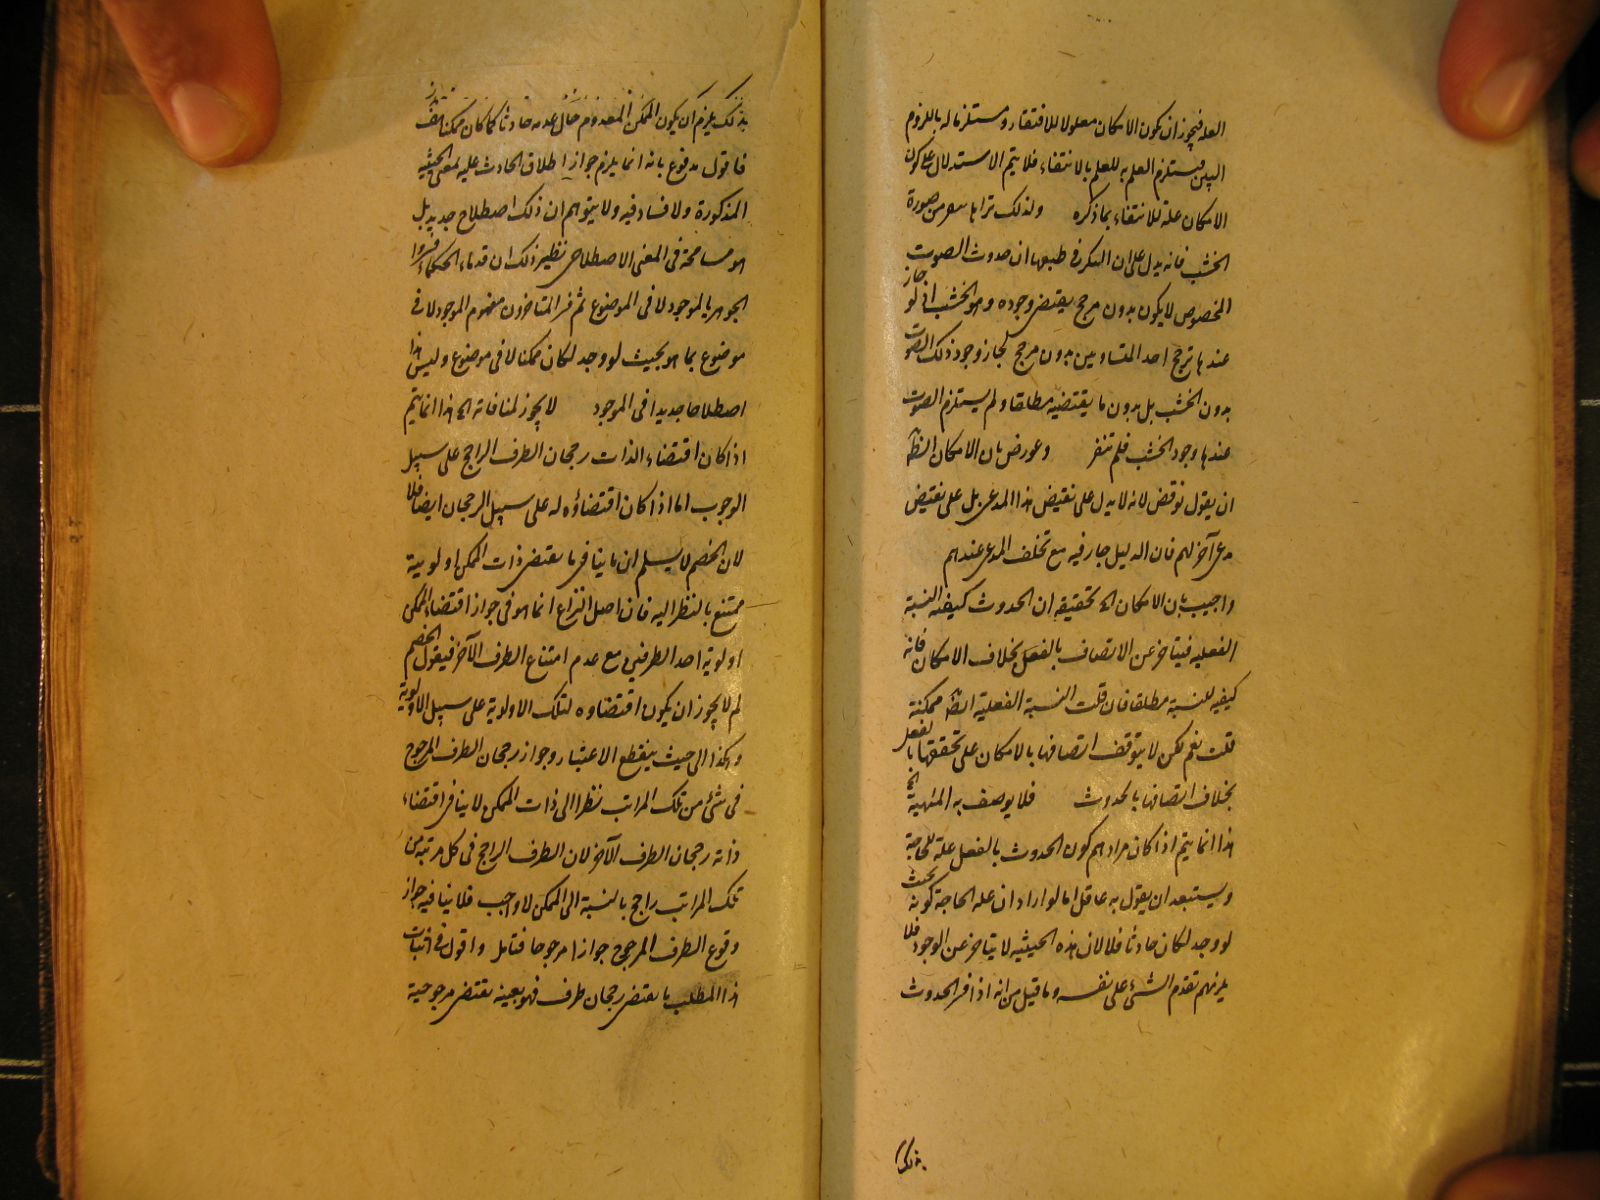 العلة فيجوز ان يكون الامكان معلولا للافتقار ومستلزما له باللزوم
البين فيستلزم العلم به للعلم بالانتفاء فلا يتم الاستدلال على كون
الامكان علة للانتفاء بما ذكره ولذلك تراها من صورة
الخشب فانه يدل على ان المركوز في طبعها ان حدوث الصوت
المخصوص لا يكون بدون مرجح يقتضى وجوده وهو الخشب اذ لو جاز
عندها ترجح احد المتساويين بدون مرجح لجاز وجود ذلك الصوت
بدون الخشب بل بدون ما يقتضيه مطلقا ولم يستلزم الصوت
عندها وجود الخشب فلم تنفر وعورض بان الامكان الظ
ان يقول نوقض لانه لا يدل على نقيض هذا المدعى بل على نقيض
مدعى آخر لهم فان الدليل جار فيه مع تخلف المدعى عندهم
واجيب بان الامكان الخ تحقيقه ان الحدوث كيفية النسبة
الفعلية فيتاخر عن الاتصاف بالفعل بخلاف الامكان فانه
كيفية للنسبة مطلقا فان قلت النسبة الفعلية ايضا ممكنة
قلت نعم لكن لا يتوقف اتصافها بالامكان على تحققها بالفعل
بخلاف اتصافها بالحدوث فلا يوصف به الماهية الخ
هذا انما يتم اذا كان مرادهم كون الحدوث بالفعل علة للحاجة
ويستبعد ان يقول به عاقل اما لو اراد ان علة الحاجة كونه بحيث
لو وجد لكان حادثا فلا لان هذه الحيثية لا يتاخر عن الوجود فلا
يلزمهم تقدم الشئ على نفسه وما قيل من انه اذا فسر الحدوث
بذلك
بذلك يلزم ان يكون الممكن المعدوم حال عدمه حادثا كما كان ممكنا هف
فاقول مدفوع بانه انما يلزم جواز اطلاق الحادث عليه بمعنى الحيثية
المذكورة ولا فساد فيه ولا يتوهم ان ذلك اصطلاح جديد بل
هو مسامحة في المعنى الاصطلاحي نظير ذلك ان قدماء الحكماء فسروا
الجوهر بالموجود لا فى الموضوع ثم فسر المتاخرون مفهوم الموجود لا في
موضوع بما هو بحيث لو وجد لكان ممكنا لا في موضوع وليس هذا
اصطلاحا جديدا فى الموجود لا يجوز لمنافاته الخ هذا انما يتم
اذا كان اقتضاء الذات رجحان الطرف الراجح على سبيل
الوجوب اما اذا كان اقتضاؤه له على سبيل الرجحان ايضا فلا
لان الخصم لا يسلم ان ما ينافى ما يقتضى ذات الممكن اولويته
ممتنع بالنظر اليه فان اصل النزاع انما هو فى جواز اقتضاء الممكن
اولوية احد الطرفين مع عدم امتناع الطرف الآخر فيقول الخصم
لم لا يجوز ان يكون اقتضاوه لتلك الاولوية على سبيل الاولوية
وهكذا الى حيث ينقطع الاعتبار وجواز رجحان الطرف المرجوح
فى شئ من تلك المراتب نظرا الى ذات الممكن لا ينافي اقتضاء
ذاته رجحان الطرف الآخر لان الطرف الراجح فى كل مرتبة من
تلك المراتب راجح بالنسبة الى الممكن لا واجب فلا ينافيه جواز
وقوع الطرف المرجوح جوازا مرجوحا فتامل واقول في اثبات
هذا المطلب ما يقتضى رجحان طرف فهو بعينه يقتضى مرجوحية